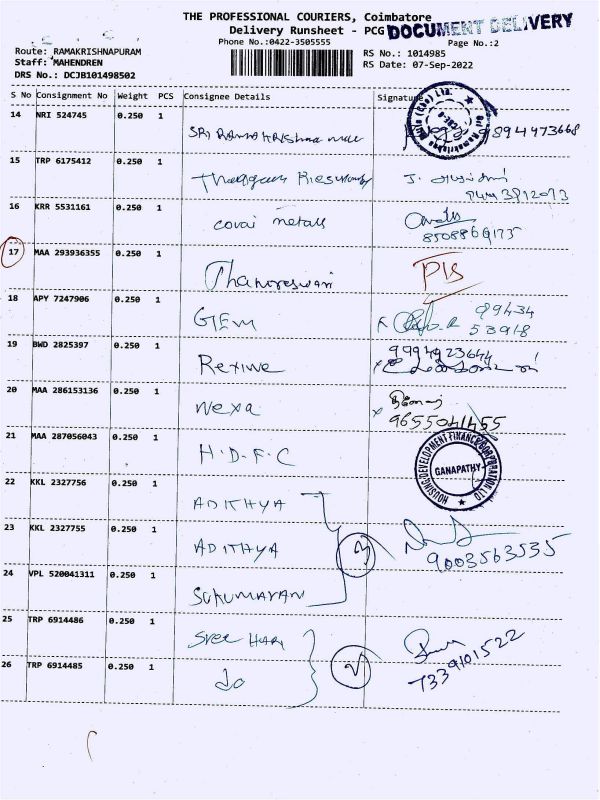 THE PROFESSIONAL COURIERS, Coimbatore
Delivery Runsheet - PCG
DOCUMENT DELIVERY
Phone No.:0422-3505555
Page No.:2
Route: RAMAKRISHNAPURAM
RS No.: 1014985
Staff: MAHENDREN
RS Date: 07-Sep-2022
DRS No.: DCJB101498502
S No Consignment No Weight PCS Consignee Details Signature
14 NRI 524745 0.250 1 9894473668
15 TRP 6175412 0.250 1
16 KRR 5531161 0.250 1 covai metals
8508869175
17 MAA 293936355 0.250 1
18 APY 7247906 0.250 1 GEM 99434
53918
19 BWD 2825397 0.250 1 9994923644
20 MAA 286153136 0.250 1 Nexa
9655041455
21 MAA 287056043 0.250 1 H.D.F.C
HOUSING DEVELOPMENT FINANCE CORPORATION LTD
GANAPATHY
22 KKL 2327756 0.250 1 ADITHYA
23 KKL 2327755 0.250 1 ADITHYA 3
9003563535
24 VPL 520041311 0.250 1 SUKUMARAN
25 TRP 6914486 0.250 1 Sree HARI
26 TRP 6914485 0.250 1 do 2
7339101522